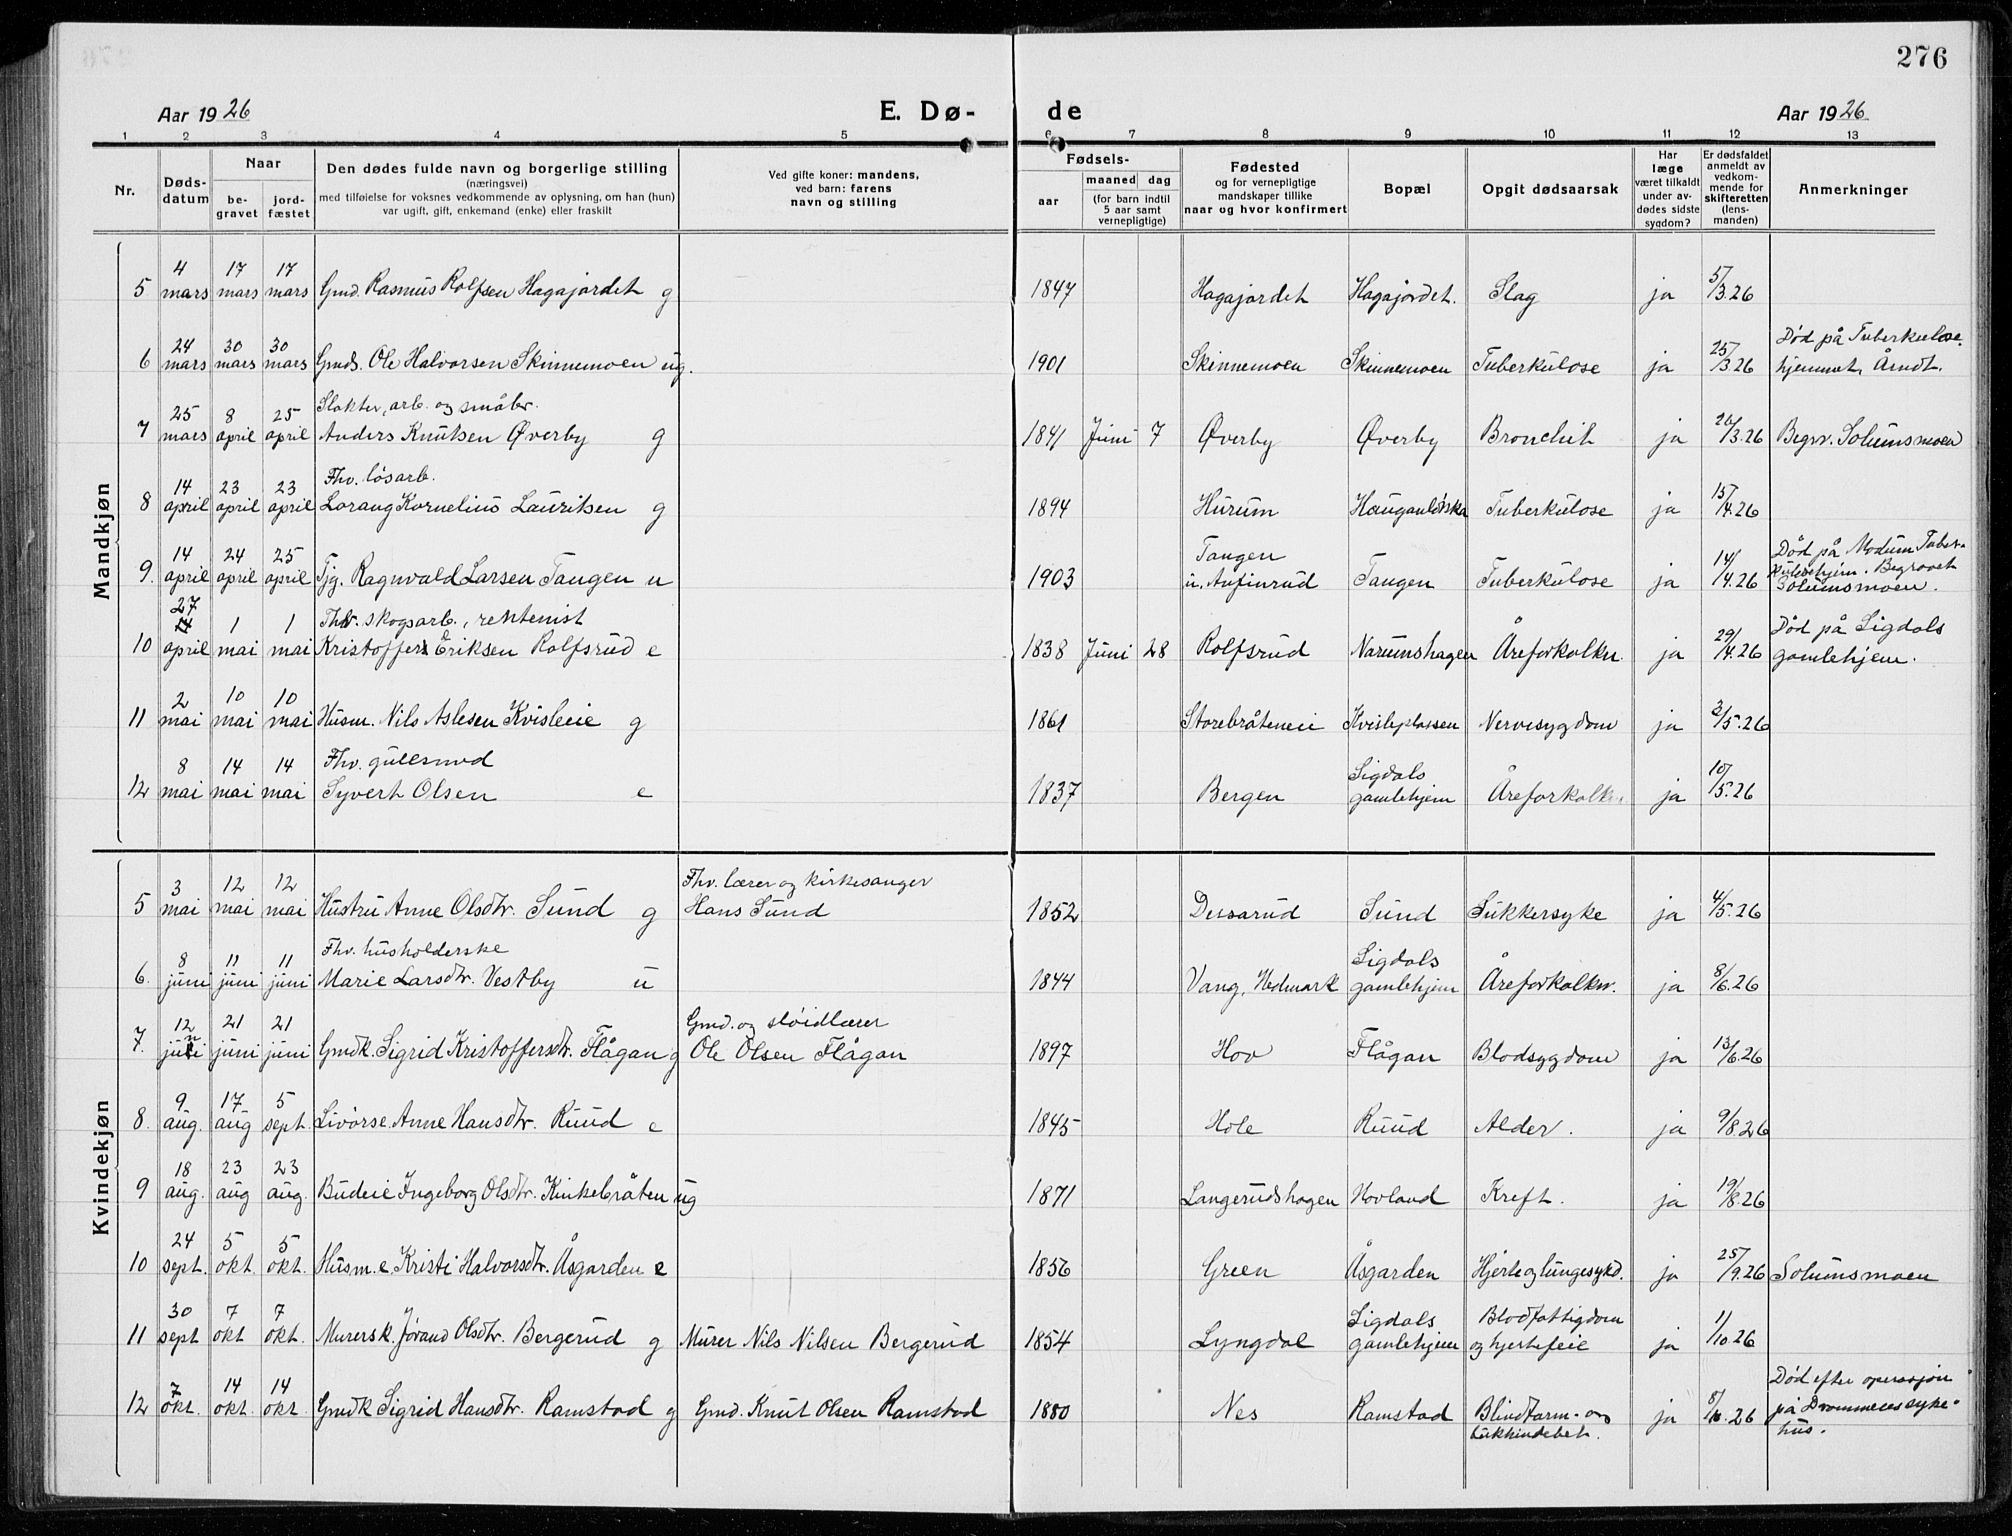 276
Aar 1926 E. Dø- de Aar 1926
1 2 3 4 5 6 7 8 9 10 11 12 13
Nr. Døds-datum Naar be-gravet jord-fæstet Den dødes fulde navn og borgerlige stilling (næringsvei) med tilføielse for voksnes vedkommende av oplysning, om han (hun) var ugift, gift, enkemand (enke) eller fraskilt Ved gifte koner: mandens, ved barn: farens navn og stilling Fødsels- aar maaned dag (for barn indtil 5 aar samt vernepligtige) Fødested og for vernepligtige mandskaper tillike naar og hvor konfirmert Bopæl Opgit dødsaarsak Har læge været tilkaldt under av-dødes sidste sygdom? Er dødsfaldet anmeldt av vedkom-mende for skifteretten (lens-manden) Anmerkninger
Mandkjøn
5 4 mars 17 mars 17 mars Gmd. Rasmus Rolfsen Hagajordet g 1847 Hagajordet Hagajordet. Slag ja 5/3.26
6 24 mars 30 mars 30 mars Gmds. Ole Halvorsen Skinnemoen ug. 1901 Skinnemoen Skinnemoen Tuberkulose ja 25/3 26 Død på Tuberkulose-hjemmet, Åmdt.
7 25 mars 8 april 25 april Slakter, arb. og småbr. Anders Knutsen Øverby g 1841 Juni 7 Øverby Øverby Bronchit ja 26/3.26 Begrv. Solumsmoen
8 14 april 23 april 23 april Fhv. løsarb. Lorang Kornelius Lauritsen g 1894 Hurum Tuberkulose ja 15/4.26
9. 14 april 24 april 25 april Tjg. Ragnvald Larsen Tangen u 1903 Tangen u. Anfinrud Tangen Tuberkulose ja 14/4.26 Død på Modum Tuber-kulosehjem. Begravet Solumsmoen.
10 27 april 1 mai 1 mai Fhv. skogsarb., rentenist Kristoffer Eriksen Rolfsrud e 1838 Juni 28 Rolfsrud Narumshagen Åreforkalkn. ja 29/4.26 Død på Sigdals gamlehjem.
11 2 mai 10 mai 10 mai Husm. Nils Aslesen Kvisleie g 1861 Storebråteneie Kvisleplassen Nervesygdom ja 3/5.26
12 8 mai 14 mai 14 mai Fhv. gullsmed Syvert Olsen e 1837 Bergen Sigdals gamlehjem Åreforkalkn. ja 10/5.26
Kvindekjøn
5 3 mai 12 mai 12 mai Hustru Anne Olsdtr. Sund g Fhv. lærer og kirkesanger Hans Sund 1852 Dessarud Sund Sukkersyke ja 4/5.26
6. 8 juni 11 juni 11 juni Fhv. husholderske Marie Larsdtr. Vestby u 1844 Vang, Hedmark Sigdals gamlehjem Åreforkalkn. ja 8/6.26
7. 12 juni 21 juni 21 juni Gmdk. Sigrid Kristoffersdtr. Flågan g Gmd. og sløidlærer Ole Olsen Flågan 1897 Hov Flågan Blodsygdom ja 13/6.26
8. 9 aug. 17 aug 5 sept. Livørse. Anne Hansdtr. Ruud e 1845 Hole Ruud Alder. ja 9/8.26
9 18 aug. 23 aug 23 aug. Budeie Ingeborg Olsdtr. Kinkebråten ug 1871 Langerudshagen Hovland Kreft. ja 19/8.26
10 24 sept. 5 okt. 5 okt. Husm.e. Kristi Halvorsdtr. Åsgarden e 1856 Green Åsgarden Hjerte og lungesykd. ja 25/9.26 Solumsmoen
11 30 sept 7 okt 7 okt. Mursersk. Jørand Olsdtr. Bergerud g Murer Nils Nilsen Bergerud 1854 Lyngdal Sigdals gamlehjem Blodfattigdom og hjertefeil ja 1/10.26
12 7 okt. 14 okt. 14 okt Gmdk Sigrid Hansdtr. Ramstad g Gmd. Knut Olsen Ramstad 1880 Nes Ramstad Blindtarm- og bukhindebet. ja 8/10.26 Død efter operasjon på Drammens syke-hus.